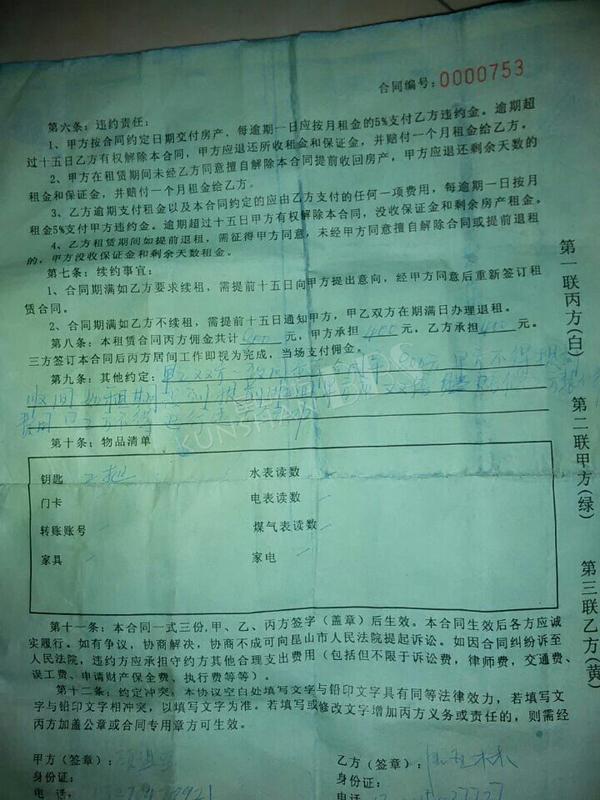 合同编号：0000753
第六条：违约责任：
1、甲方按合同约定日期交付房产，每逾期一日应按月租金的5%支付乙方违约金。逾期超
过十五日乙方有权解除本合同，甲方应退还所收租金和保证金，并赔付一个月租金给乙方。
2、甲方在租赁期间未经乙方同意擅自解除本合同提前收回房产，甲方应退还剩余天数的
租金和保证金，并赔付一个月租金给乙方。
3、乙方逾期支付租金以及本合同约定的应由乙方支付的任何一项费用，每逾期一日按月
租金5%支付甲方违约金。逾期超过十五日甲方有权解除本合同，没收保证金和剩余房产租金。
4、乙方租赁期间如提前退租，需征得甲方同意，未经甲方同意擅自解除合同或提前退租
的，甲方没收保证金和剩余天数租金。
第七条：续约事宜：
1、合同期满如乙方要求续租，需提前十五日向甲方提出意向，经甲方同意后重新签订租
赁合同。
2、合同期满如乙方不续租，需提前十五日通知甲方，甲乙双方在期满日办理退租。
第八条：本租赁合同丙方佣金共计 元，甲方承担 400 元，乙方承担 元。
三方签订本合同后丙方居间工作即视为完成，当场支付佣金。
第九条：其他约定：
KUNSHAN BBS
第十条：物品清单
钥匙 水表读数
门卡 电表读数
转账账号 煤气表读数
家具 家电
第十一条：本合同一式三份,甲、乙、丙方签字（盖章）后生效。本合同生效后各方应诚
实履行。如有争议，协商解决，协商不成可向昆山市人民法院提起诉讼。如因合同纠纷诉至
人民法院，违约方应承担守约方其他合理支出费用（包括但不限于诉讼费，律师费，交通费、
误工费、申请财产保全费、执行费等等）。
第十二条：约定冲突：本协议空白处填写文字与铅印文字具有同等法律效力，若填写文
字与铅印文字相冲突，以填写文字为准。若填写或修改文字增加丙方义务或责任的，则需经
丙方加盖公章或合同专用章方可生效。
甲方（签章）： 乙方（签章）：
身份证： 身份证：
电 话： 电话
第一联丙方(白)
第二联甲方(绿)
第三联乙方(黄)